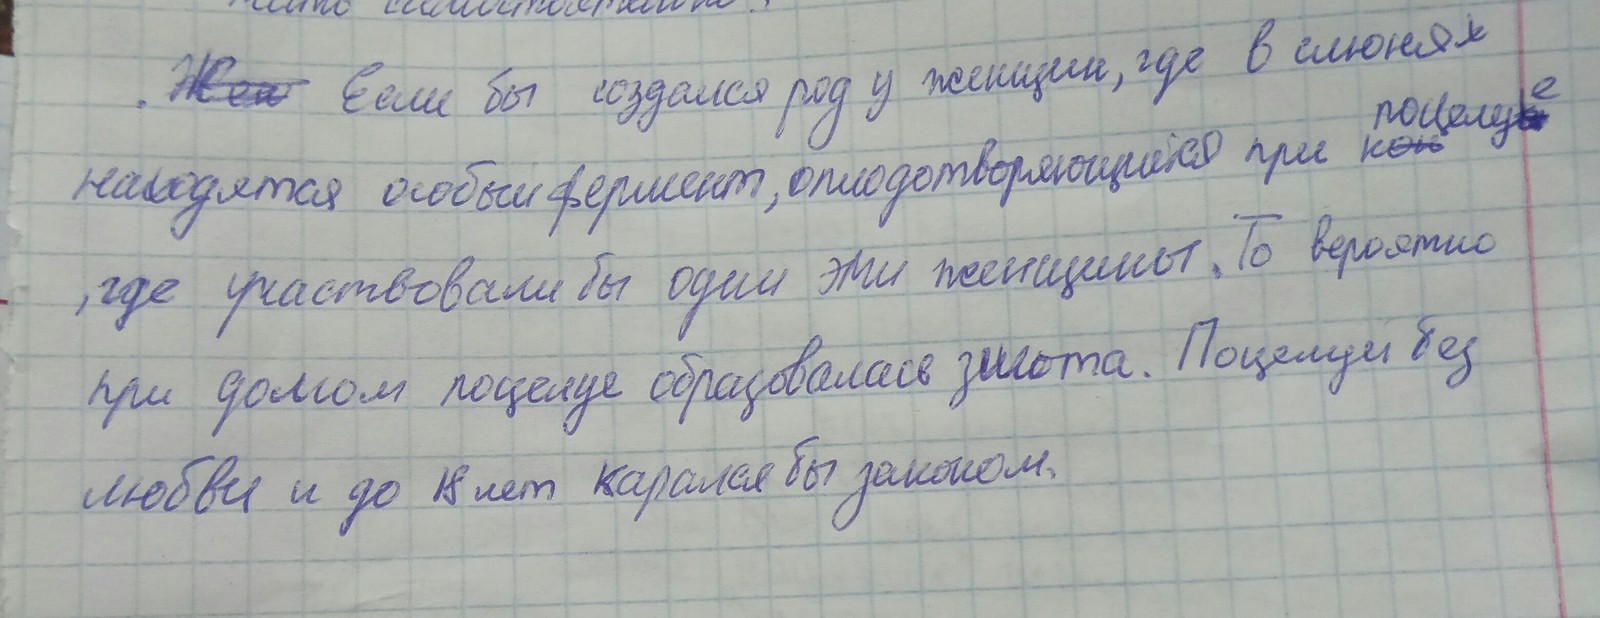 . Если бы создался род у женщин, где в слюнях
находятся особый фермент, оплодотворяющийся при поцелуе
, где участвовали бы одни эти женщины. То вероятно
при долгом поцелуе образовалась зигота. Поцелуи без
любви и до 18 лет карался бы законом.